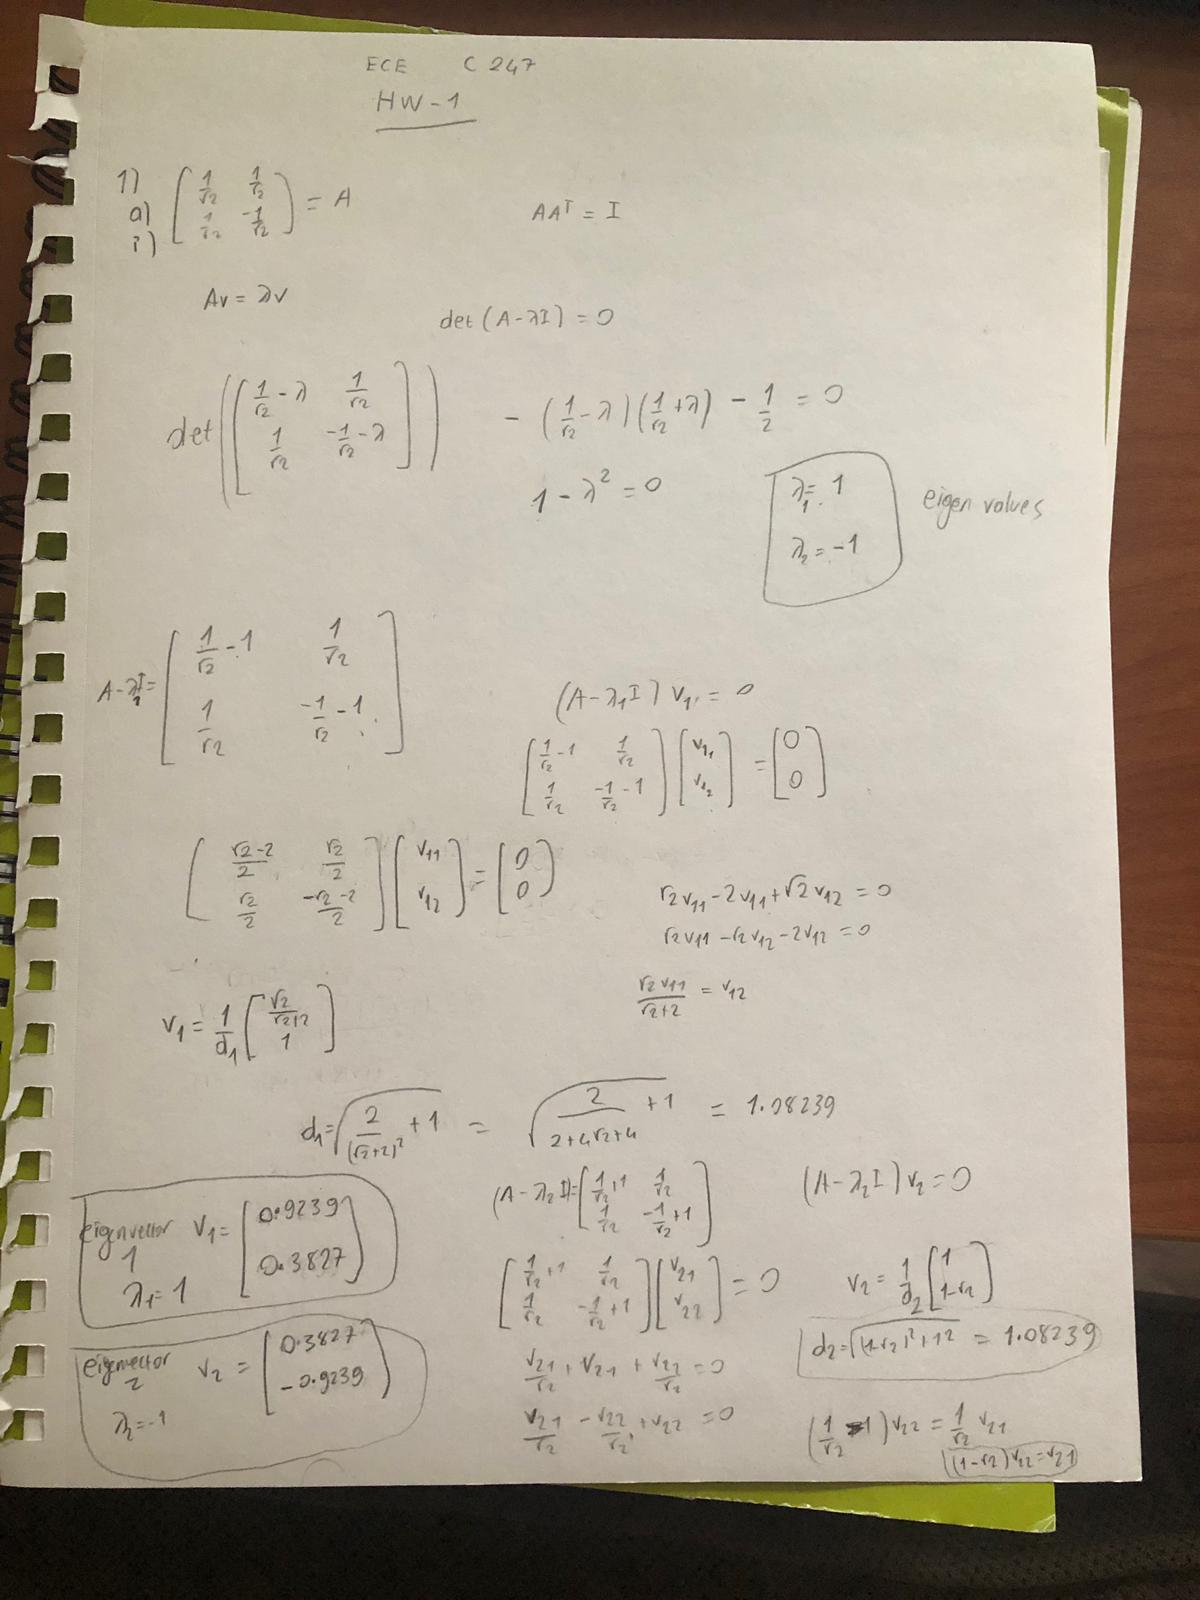 ECE C 247
HW-1
1)
a)
i)
[1/√2 1/√2; 1/√2 -1/√2] = A
AAᵀ = I
Av = λv
det(A-λI) = 0
det([1/√2 - λ 1/√2; 1/√2 -1/√2 - λ])
- (1/√2 - λ)(1/√2 + λ) - 1/2 = 0
1 - λ² = 0
λ₁ = 1
λ₂ = -1
eigen values
A-λ₁I = [1/√2 - 1 1/√2; 1/√2 -1/√2 - 1]
(A-λ₁I) v₁ = 0
[1/√2 - 1 1/√2; 1/√2 -1/√2 - 1] [v₁₁; v₁₂] = [0; 0]
[(√2-2)/2 √2/2; √2/2 (-√2-2)/2] [v₁₁; v₁₂] = [0; 0]
√2v₁₁ - 2v₁₁ + √2v₁₂ = 0
√2v₁₁ - √2v₁₂ - 2v₁₂ = 0
√2v₁₁/(√2+2) = v₁₂
v₁ = 1/d₁ [√2/(√2+2); 1]
d₁ = √(2/(√2+2)² + 1) = √(2/(2+4√2+4) + 1) = 1.08239
eigenvector 1
λ₁ = 1
v₁ = [0.9239; 0.3827]
(A-λ₂I) = [1/√2 + 1 1/√2; 1/√2 -1/√2 + 1]
(A-λ₂I) v₂ = 0
[1/√2 + 1 1/√2; 1/√2 -1/√2 + 1] [v₂₁; v₂₂] = 0
v₂ = 1/d₂ [1; 1-√2]
d₂ = √((1-√2)² + 1²) = 1.08239
eigenvector 2
λ₂ = -1
v₂ = [0.3827; -0.9239]
v₂₁/√2 + v₂₁ + v₂₂/√2 = 0
v₂₁/√2 - v₂₂/√2 + v₂₂ = 0
(1/√2 - 1) v₂₂ = 1/√2 v₂₁
(1-√2) v₂₂ = v₂₁